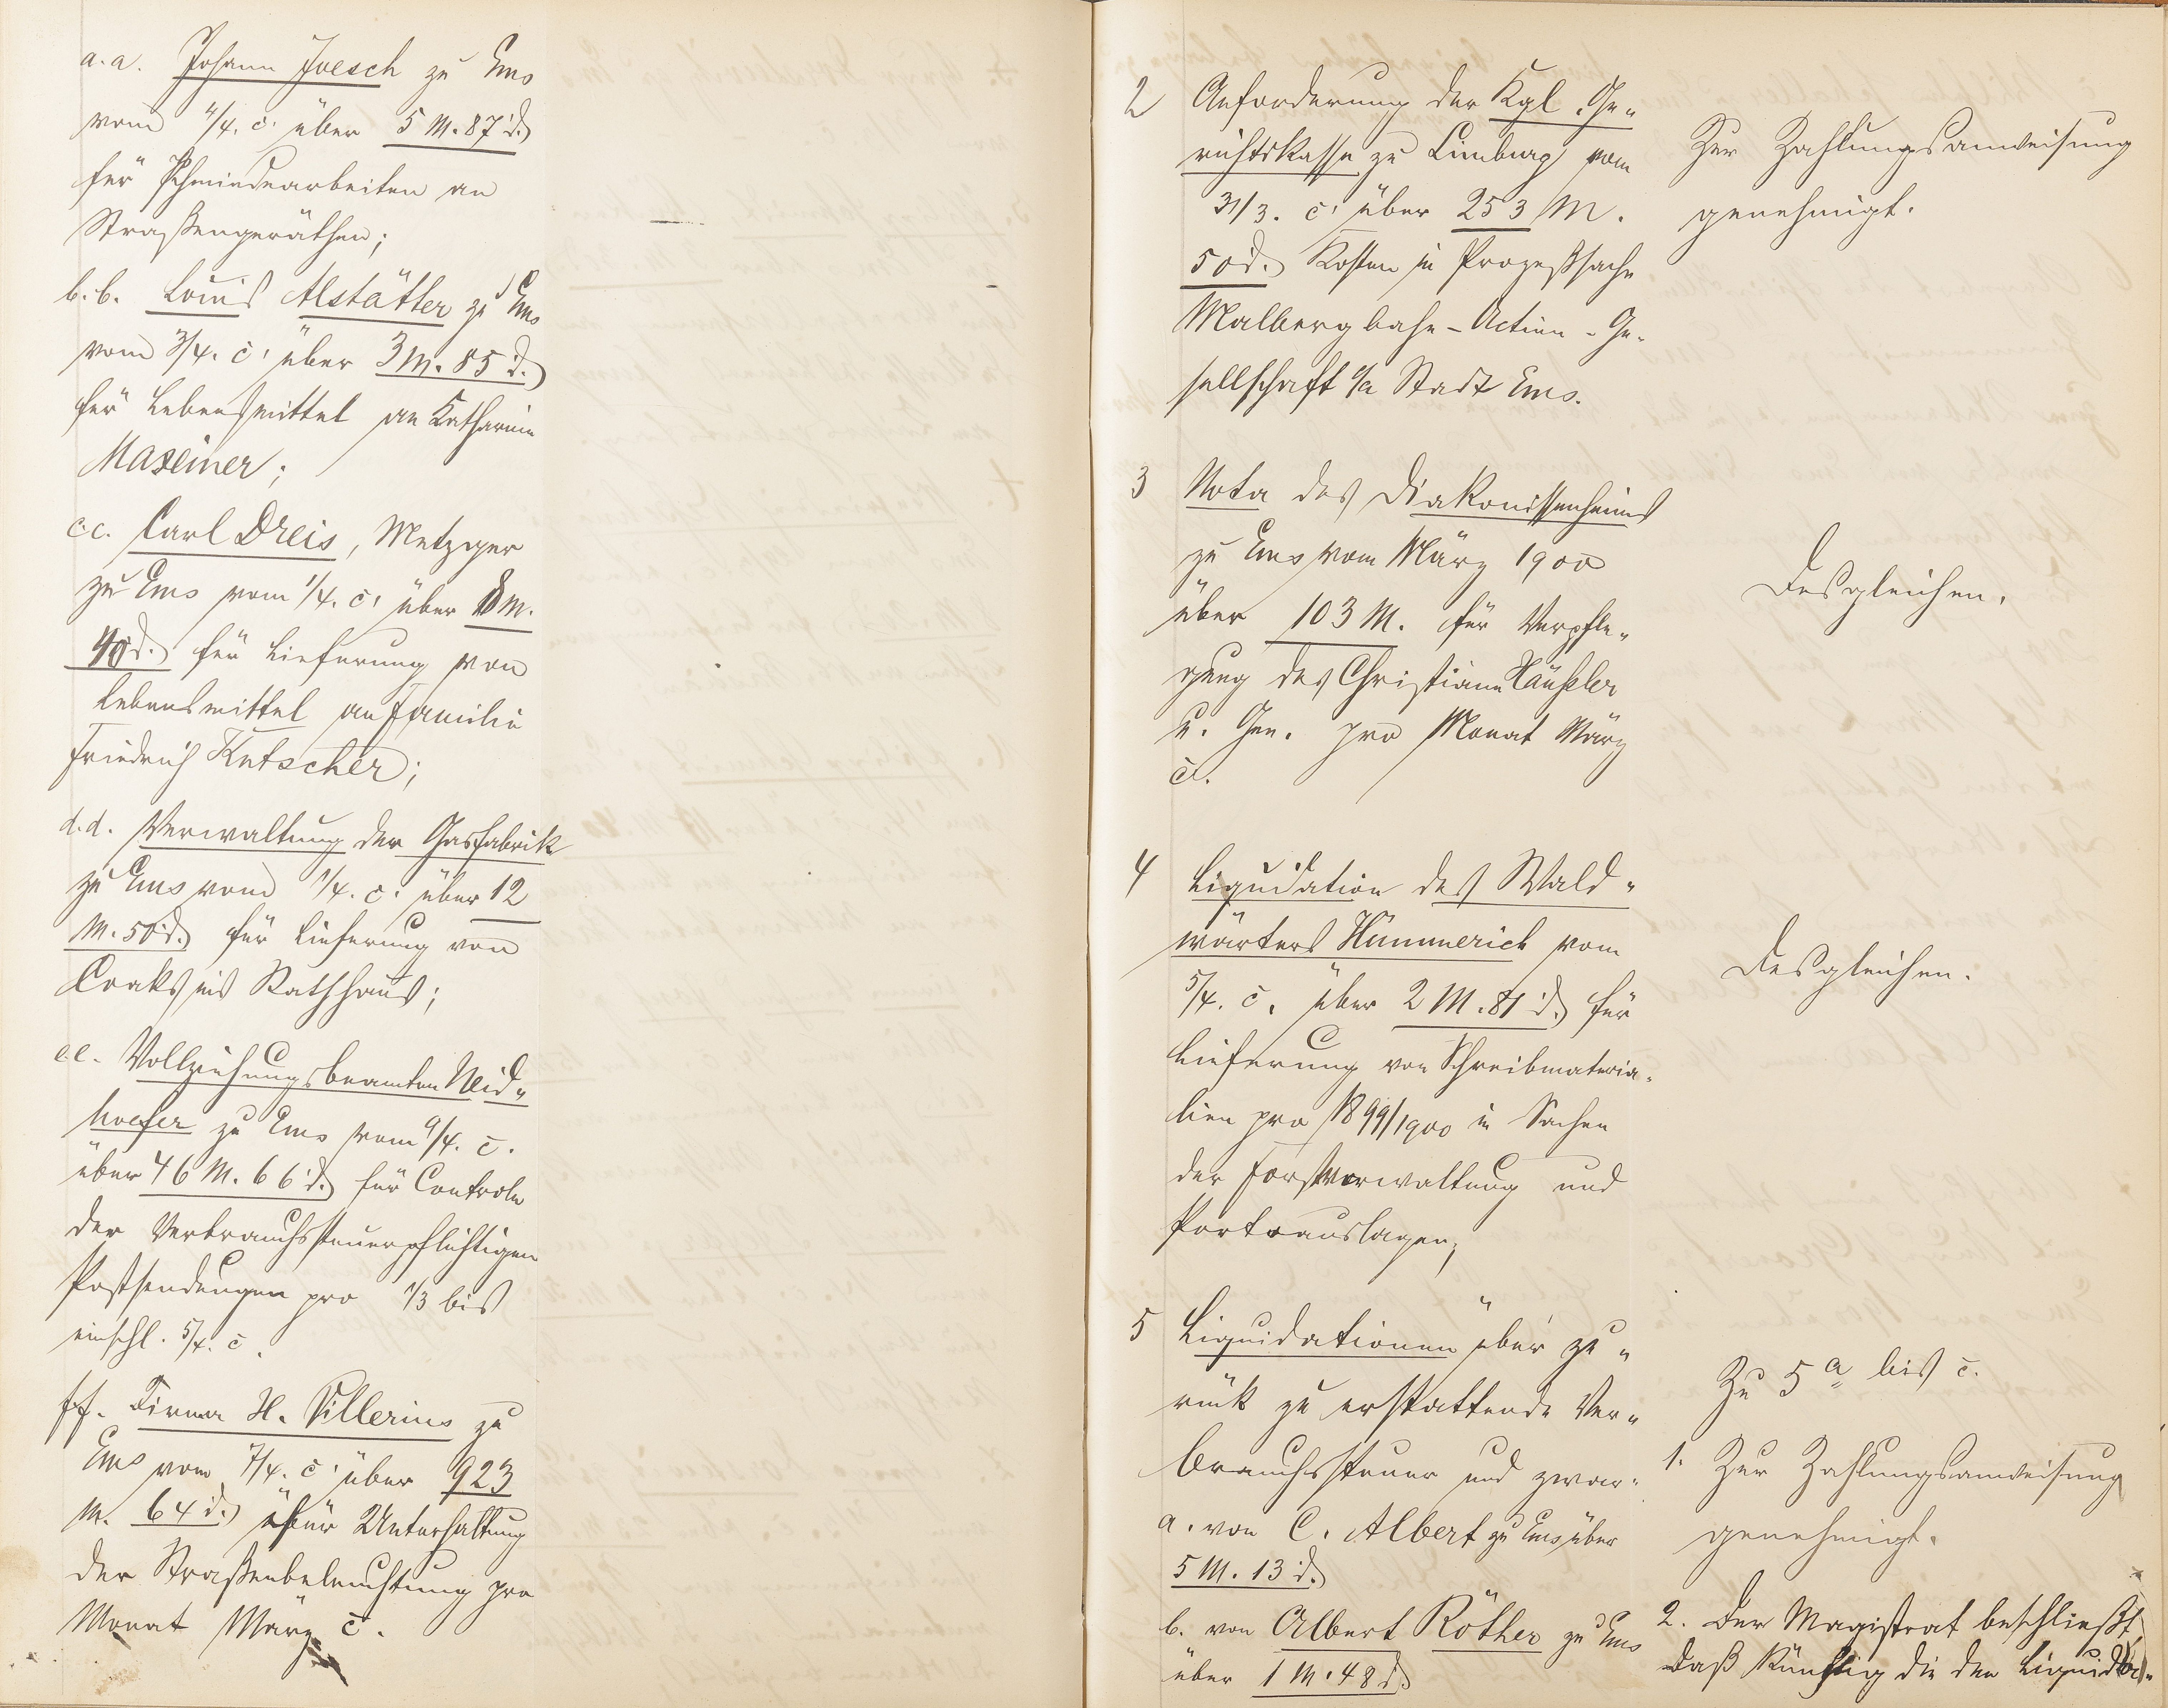 a.a. Johann Joesch zu Ems
vom 4/4. c. über 5 M. 87 d.
für Schmiedearbeiten an
Straßengeräthen;
b.b. Louis Alstätter zu Ems
vom 3/4. c. über 3 M. 85 d.
für Lebensmittel an Katharina
Maxeiner;
cc. Carl Dreis, Metzger
zu Ems vom 1/4. c. über 8 M.
40 d. für Lieferung von
Lebensmittel an Familie
Friedrich Kutscher;
d.d. Verwaltung der Gasfabrik
zu Ems vom 1/4. c. über 12
M. 50 d. für Lieferung von
Coaks ins Rathhaus;
ee. Vollziehungsbeamten Neid„
hoefer zu Ems vom 9/4. c.
über 46 M. 66 d. für Controle
der Verbrauchssteuerpflichtigen
Postsendungen pro 1/3 bis
einschl. 5/4. c.
ff. Firma H. Villerius zu
Ems vom 7/4. c. über 923
M. 64 d. für Unterhaltung
der Straßenbeleuchtung pro
Monat März c.
2 Anforderung der Kgl. Ge„
richtskasse zu Limburg vom
31/3. c. über 253 M.
50 d. Kosten in Prozeßsache
Malbergbahn-Actien-Ge-
sellschaft c/a Stadt Ems.
Zur Zahlungsanweisung
genehmigt.
3 Nota des Diakonissenheims
zu Ems vom März 1900
über 103 M. für Verpfle„
gung des Christian Häußler
u. Gen. pro Monat März
c.
Desgleichen.
4 Liquidation des Wald„
wärters Hümmerich vom
5/4. c. über 2 M. 81 d. für
Lieferung von Schreibmateria-
lien pro 1899/1900 in Sachen
der Forstverwaltung und
Portoauslagen;
Desgleichen.
5 Liquidationen über zu„
rück zu erstattende Ver„
brauchssteuer und zwar:
a. von C. Albert zu Ems über
5 M. 13 d.
b. von Albert Röther zu Ems
über 1 M. 48 d.
Zu 5 a bis c.
1. Zur Zahlungsanweisung
genehmigt.
2. Der Magistrat beschließt,
daß künftig die den Liquida„